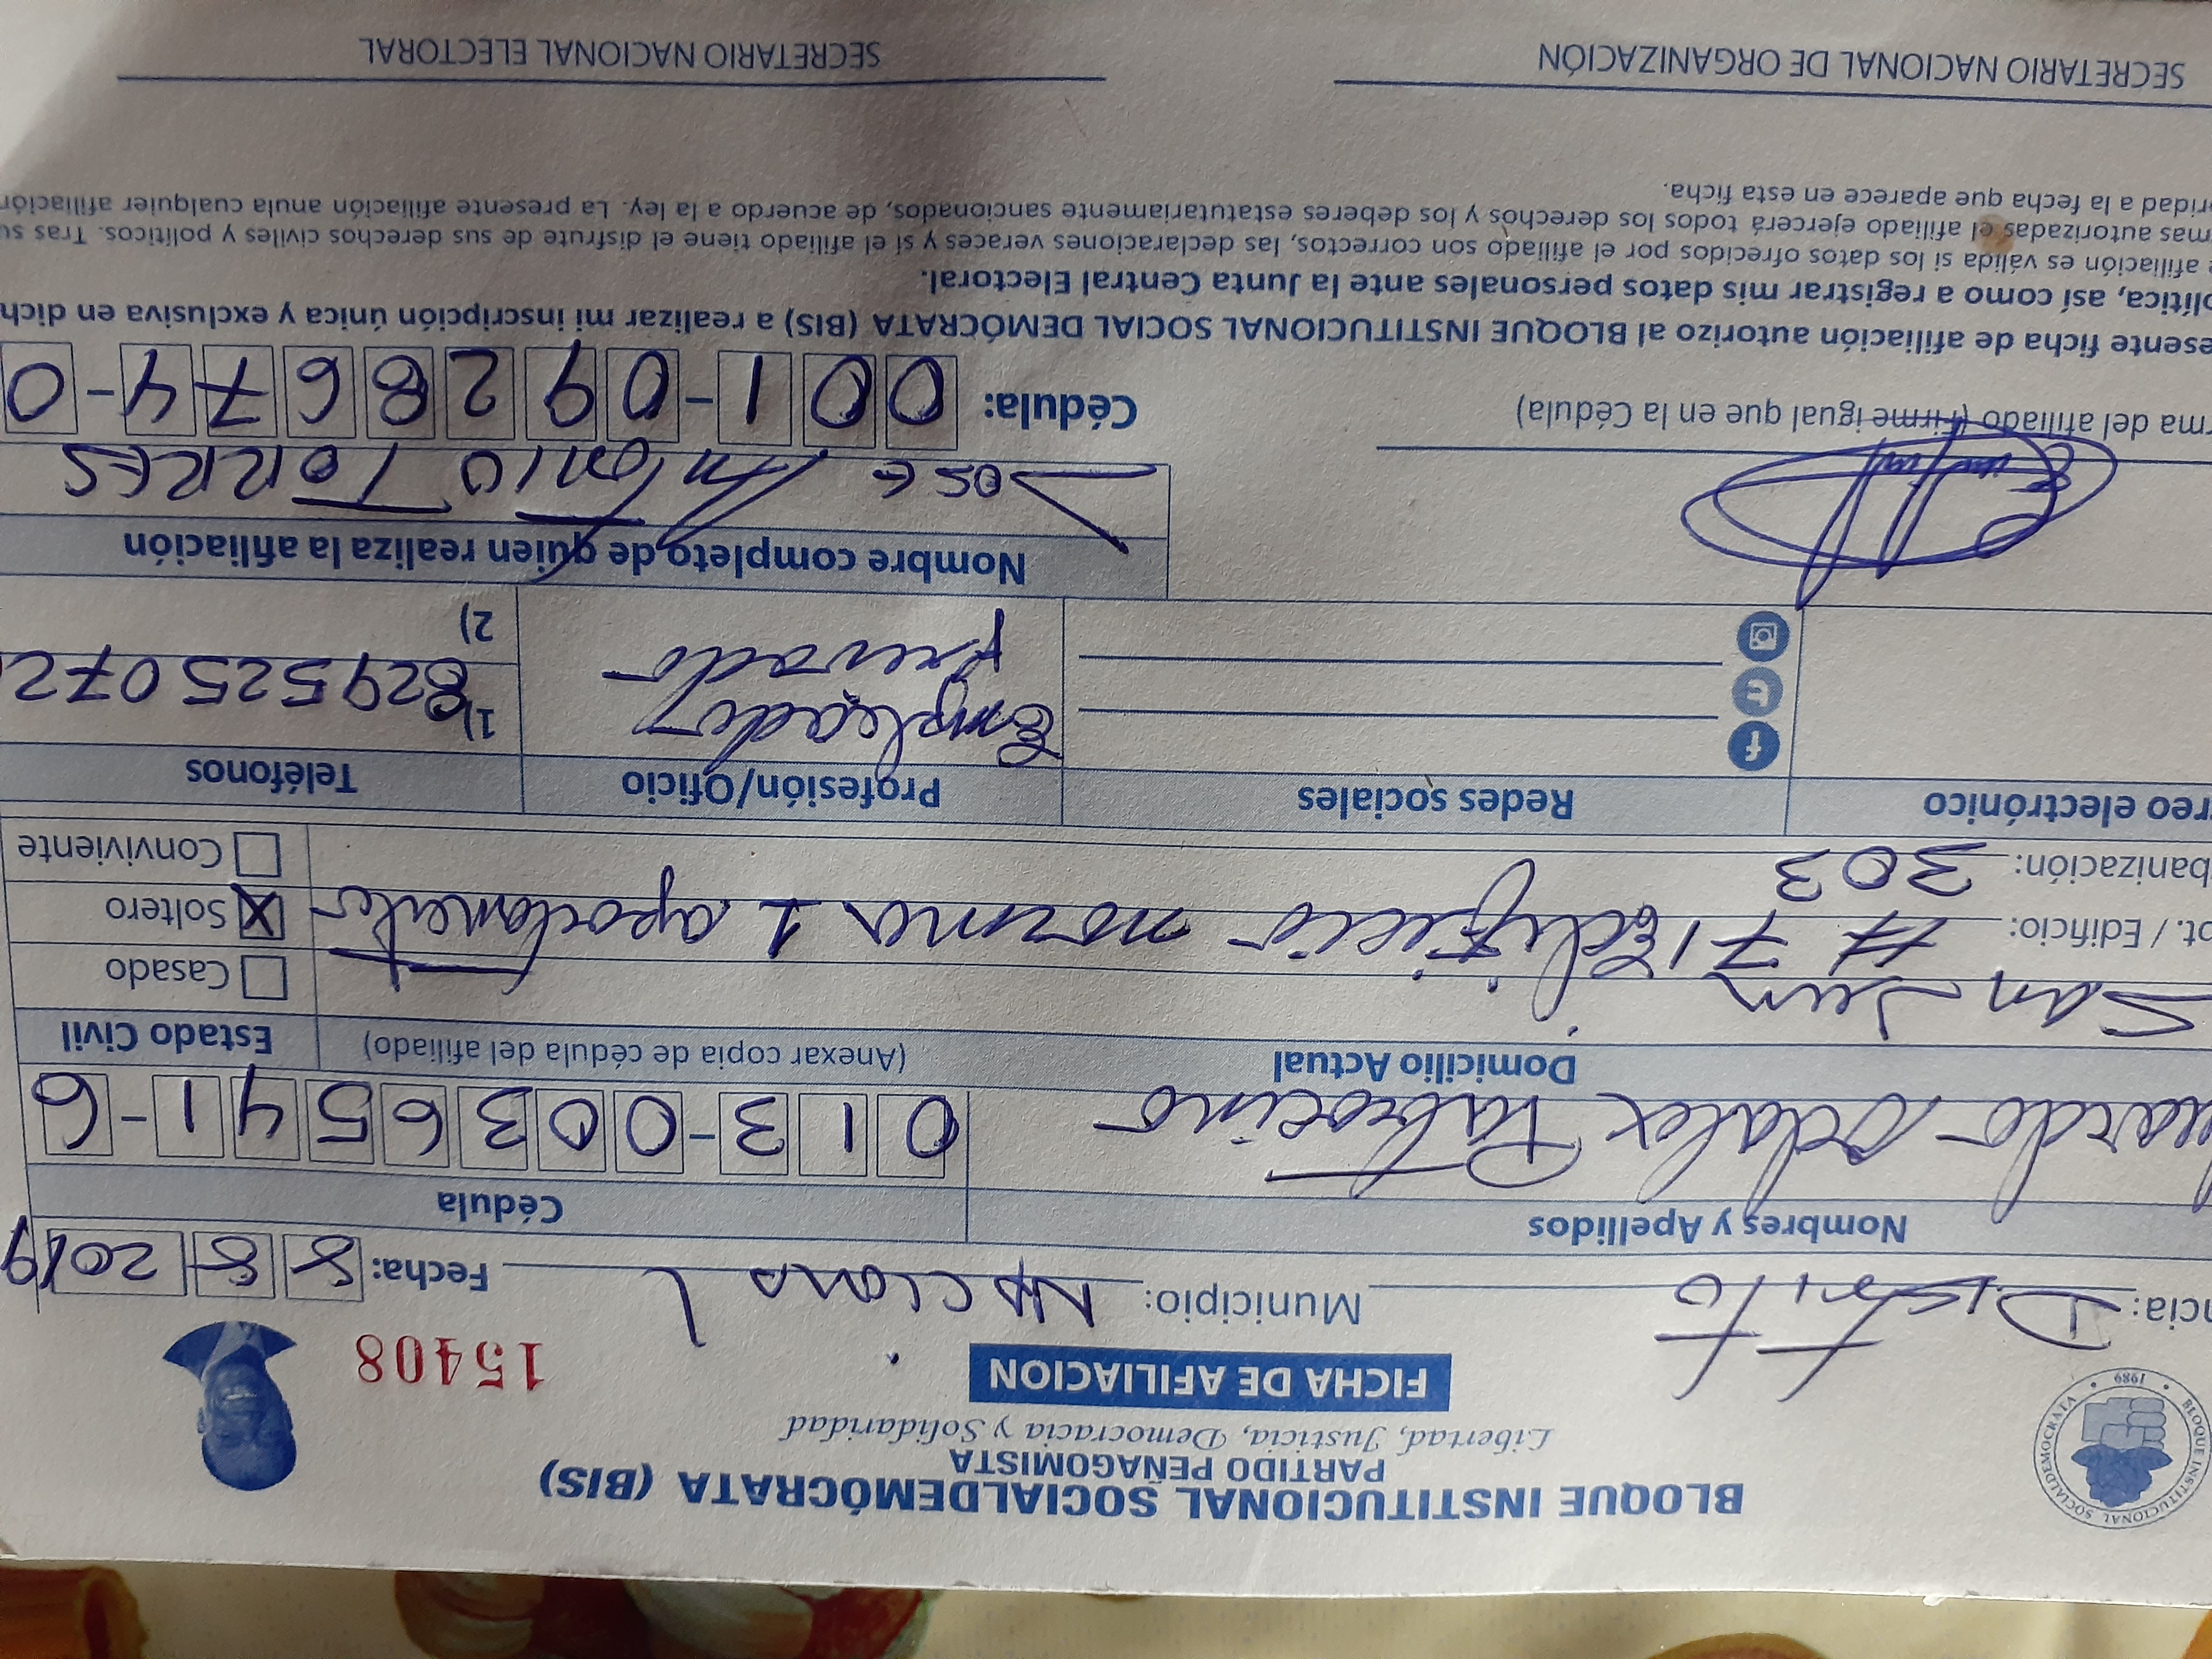 BLOQUE INSTITUCIONAL SOCIALDEMÓCRATA (BIS)
PARTIDO PEÑAGOMISTA
Libertad, Justicia, Democracia y Solidaridad
FICHA DE AFILIACION
15408
BLOQUE INSTITUCIONAL SOCIALDEMOCRATA • 1989 •
ncia: Distrito Municipio: NAcional Fecha: 8 8 2019
Nombres y Apellidos Cédula
uardo odalex Patrocino 013-0036541-6
Domicilio Actual (Anexar copia de cédula del afiliado) Estado Civil
San Juan Casado
pt. / Edificio: # 71 Edificio norma 1 apartamento X Soltero
banización: 303 Conviviente
reo electrónico Redes sociales Profesión/Oficio Teléfonos
Empleado 1) 829525072
privado 2)
Nombre completo de quien realiza la afiliación
Jose Antonio TORRES
rma del afiliado (Firme igual que en la Cédula) Cédula: 001-0928674-0
esente ficha de afiliación autorizo al BLOQUE INSTITUCIONAL SOCIAL DEMÓCRATA (BIS) a realizar mi inscripción única y exclusiva en dich
olítica, así como a registrar mis datos personales ante la Junta Central Electoral.
e afiliación es válida si los datos ofrecidos por el afiliado son correctos, las declaraciones veraces y si el afiliado tiene el disfrute de sus derechos civiles y políticos. Tras su
mas autorizadas el afiliado ejercerá todos los derechos y los deberes estatutariamente sancionados, de acuerdo a la ley. La presente afiliación anula cualquier afiliación
oridad a la fecha que aparece en esta ficha.
SECRETARIO NACIONAL DE ORGANIZACIÓN SECRETARIO NACIONAL ELECTORAL